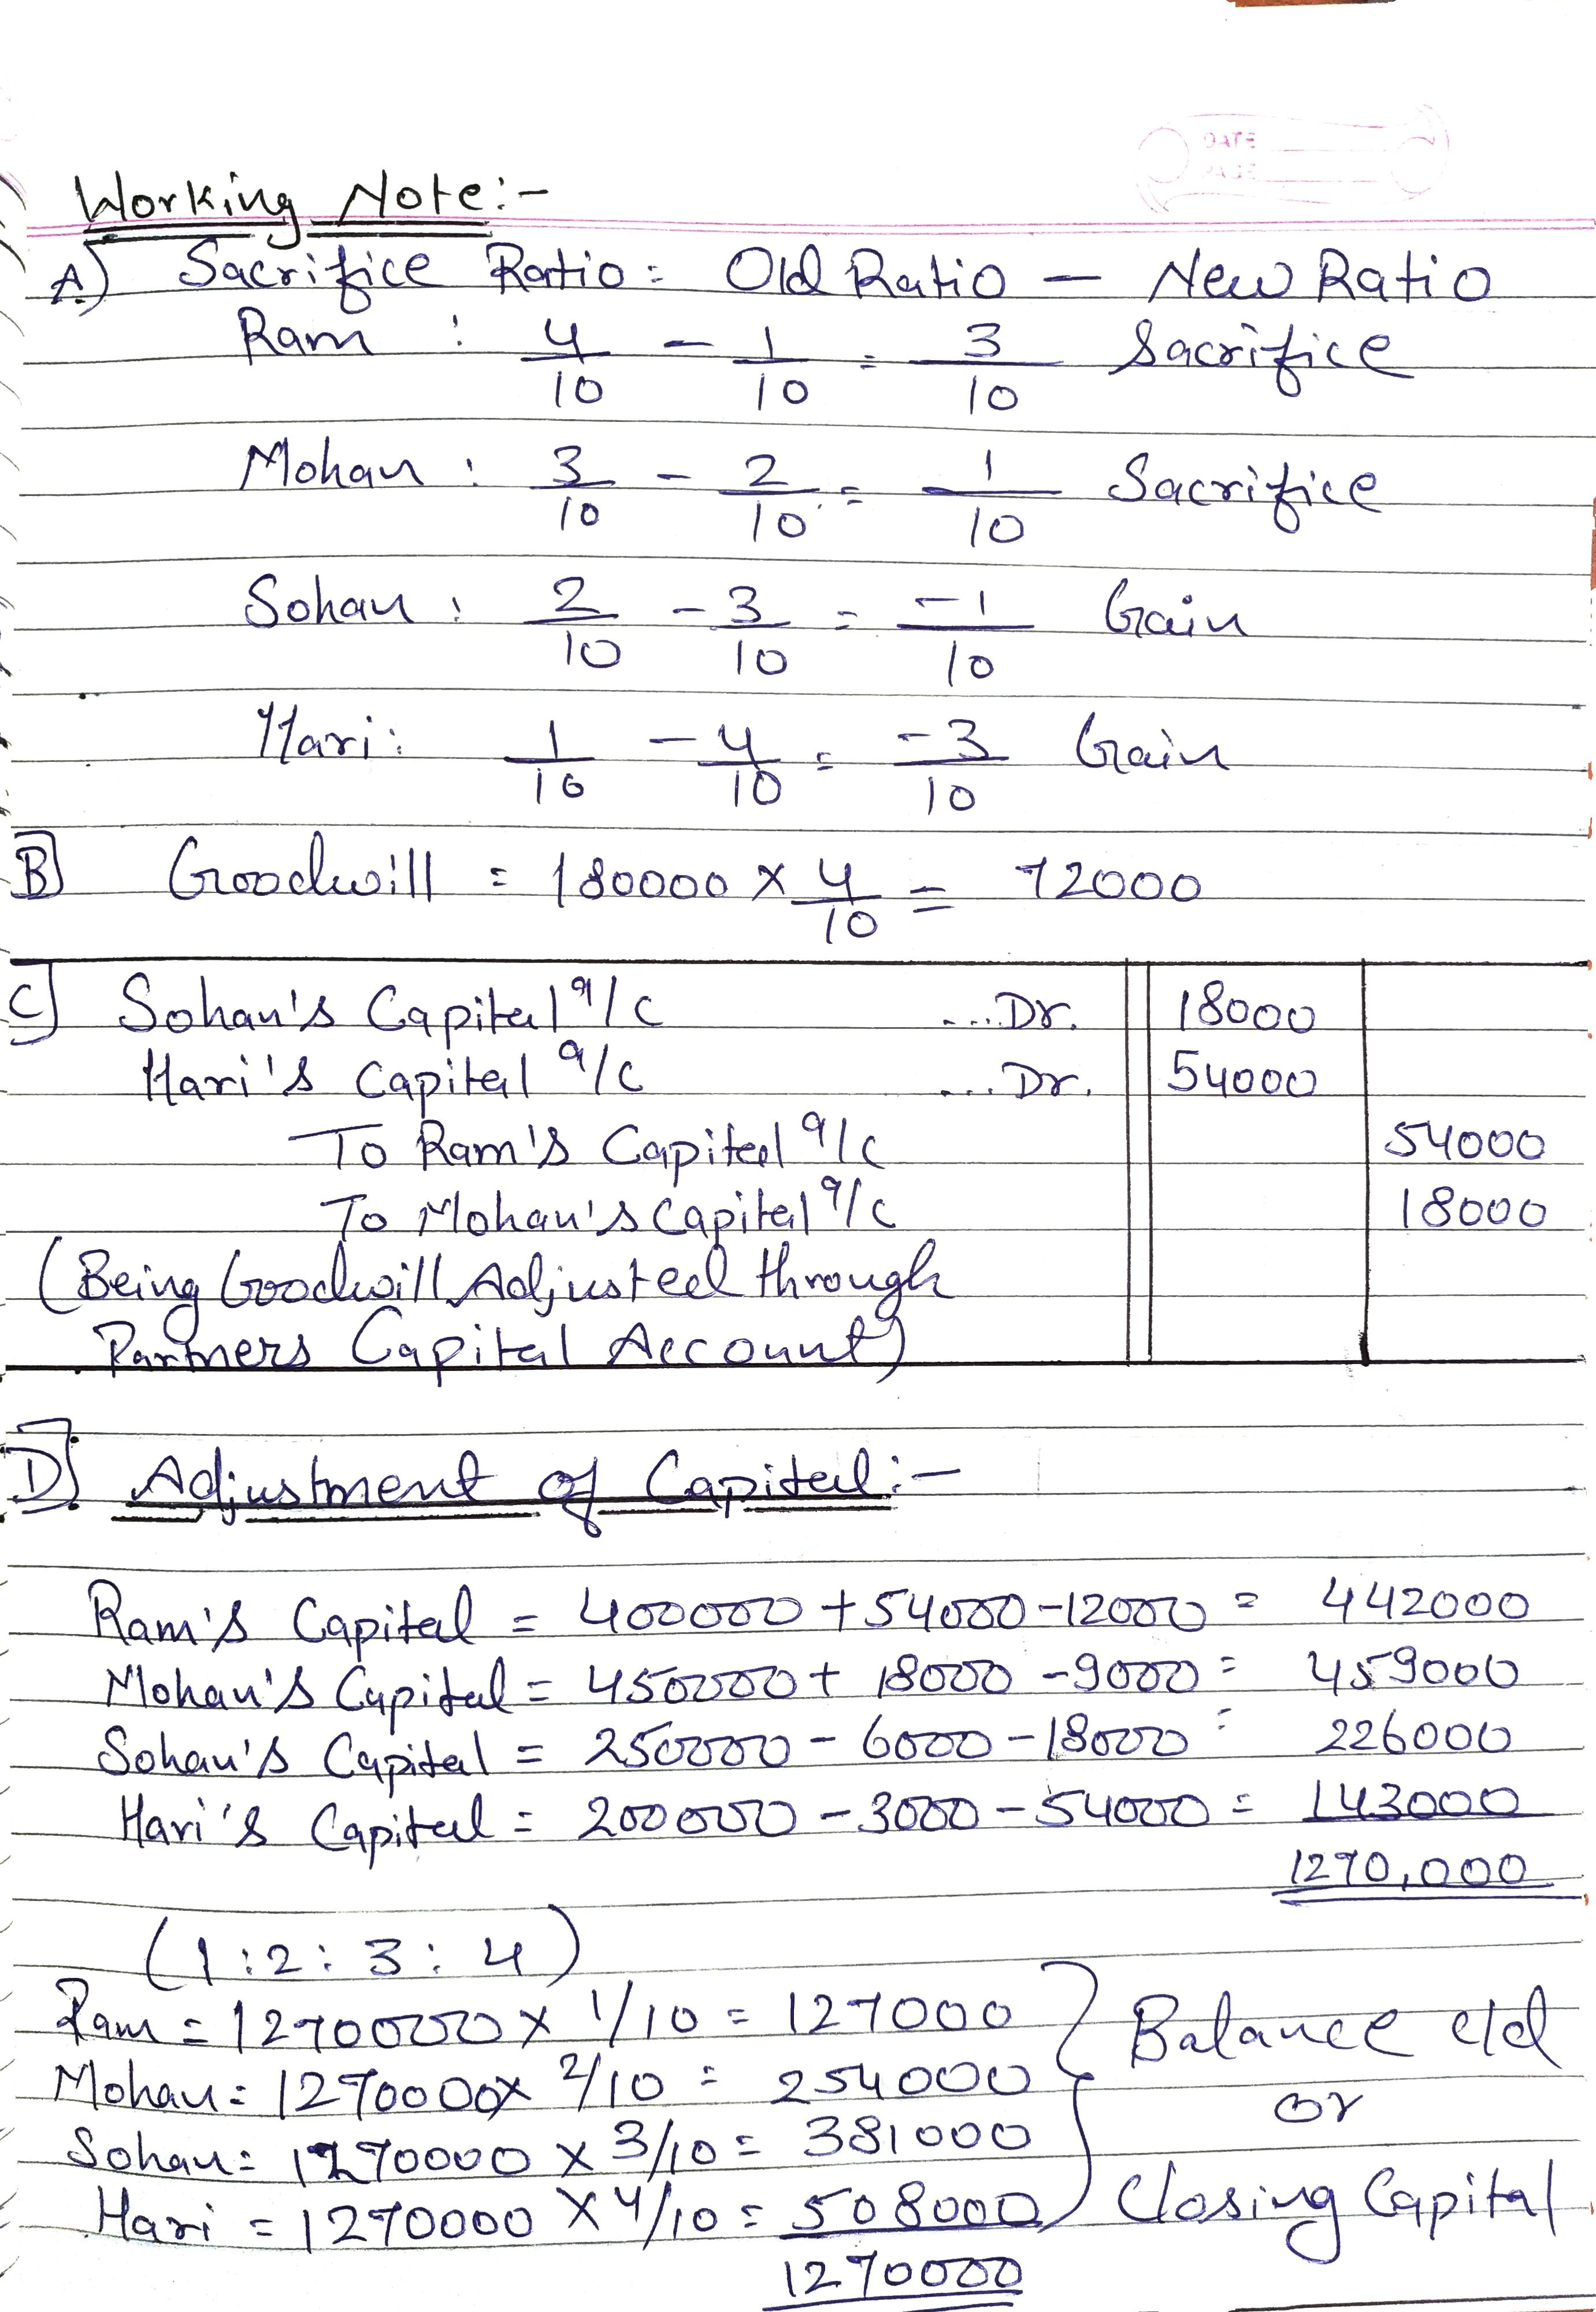 DATE
PAGE
Working Note:-
A) Sacrifice Ratio = Old Ratio - New Ratio
Ram : 4/10 - 1/10 = 3/10 Sacrifice
Mohan : 3/10 - 2/10 = 1/10 Sacrifice
Sohan : 2/10 - 3/10 = -1/10 Gain
Hari : 1/10 - 4/10 = -3/10 Gain
B] Goodwill = 180000 x 4/10 = 72000
C] Sohan's Capital a/c ....Dr. 18000
Hari's Capital a/c ....Dr. 54000
To Ram's Capital a/c 54000
To Mohan's Capital a/c 18000
(Being Goodwill Adjusted through
Partners Capital Account)
D] Adjustment of Capital:-
Ram's Capital = 400000 + 54000 - 12000 = 442000
Mohan's Capital = 450000 + 18000 - 9000 = 459000
Sohan's Capital = 250000 - 6000 - 18000 = 226000
Hari's Capital = 200000 - 3000 - 54000 = 143000
1270,000
(1:2:3:4)
Ram = 1270000 x 1/10 = 127000
Mohan = 1270000 x 2/10 = 254000
Sohan = 1270000 x 3/10 = 381000
Hari = 1270000 x 4/10 = 508000
1270000
Balance c/d
or
Closing Capital